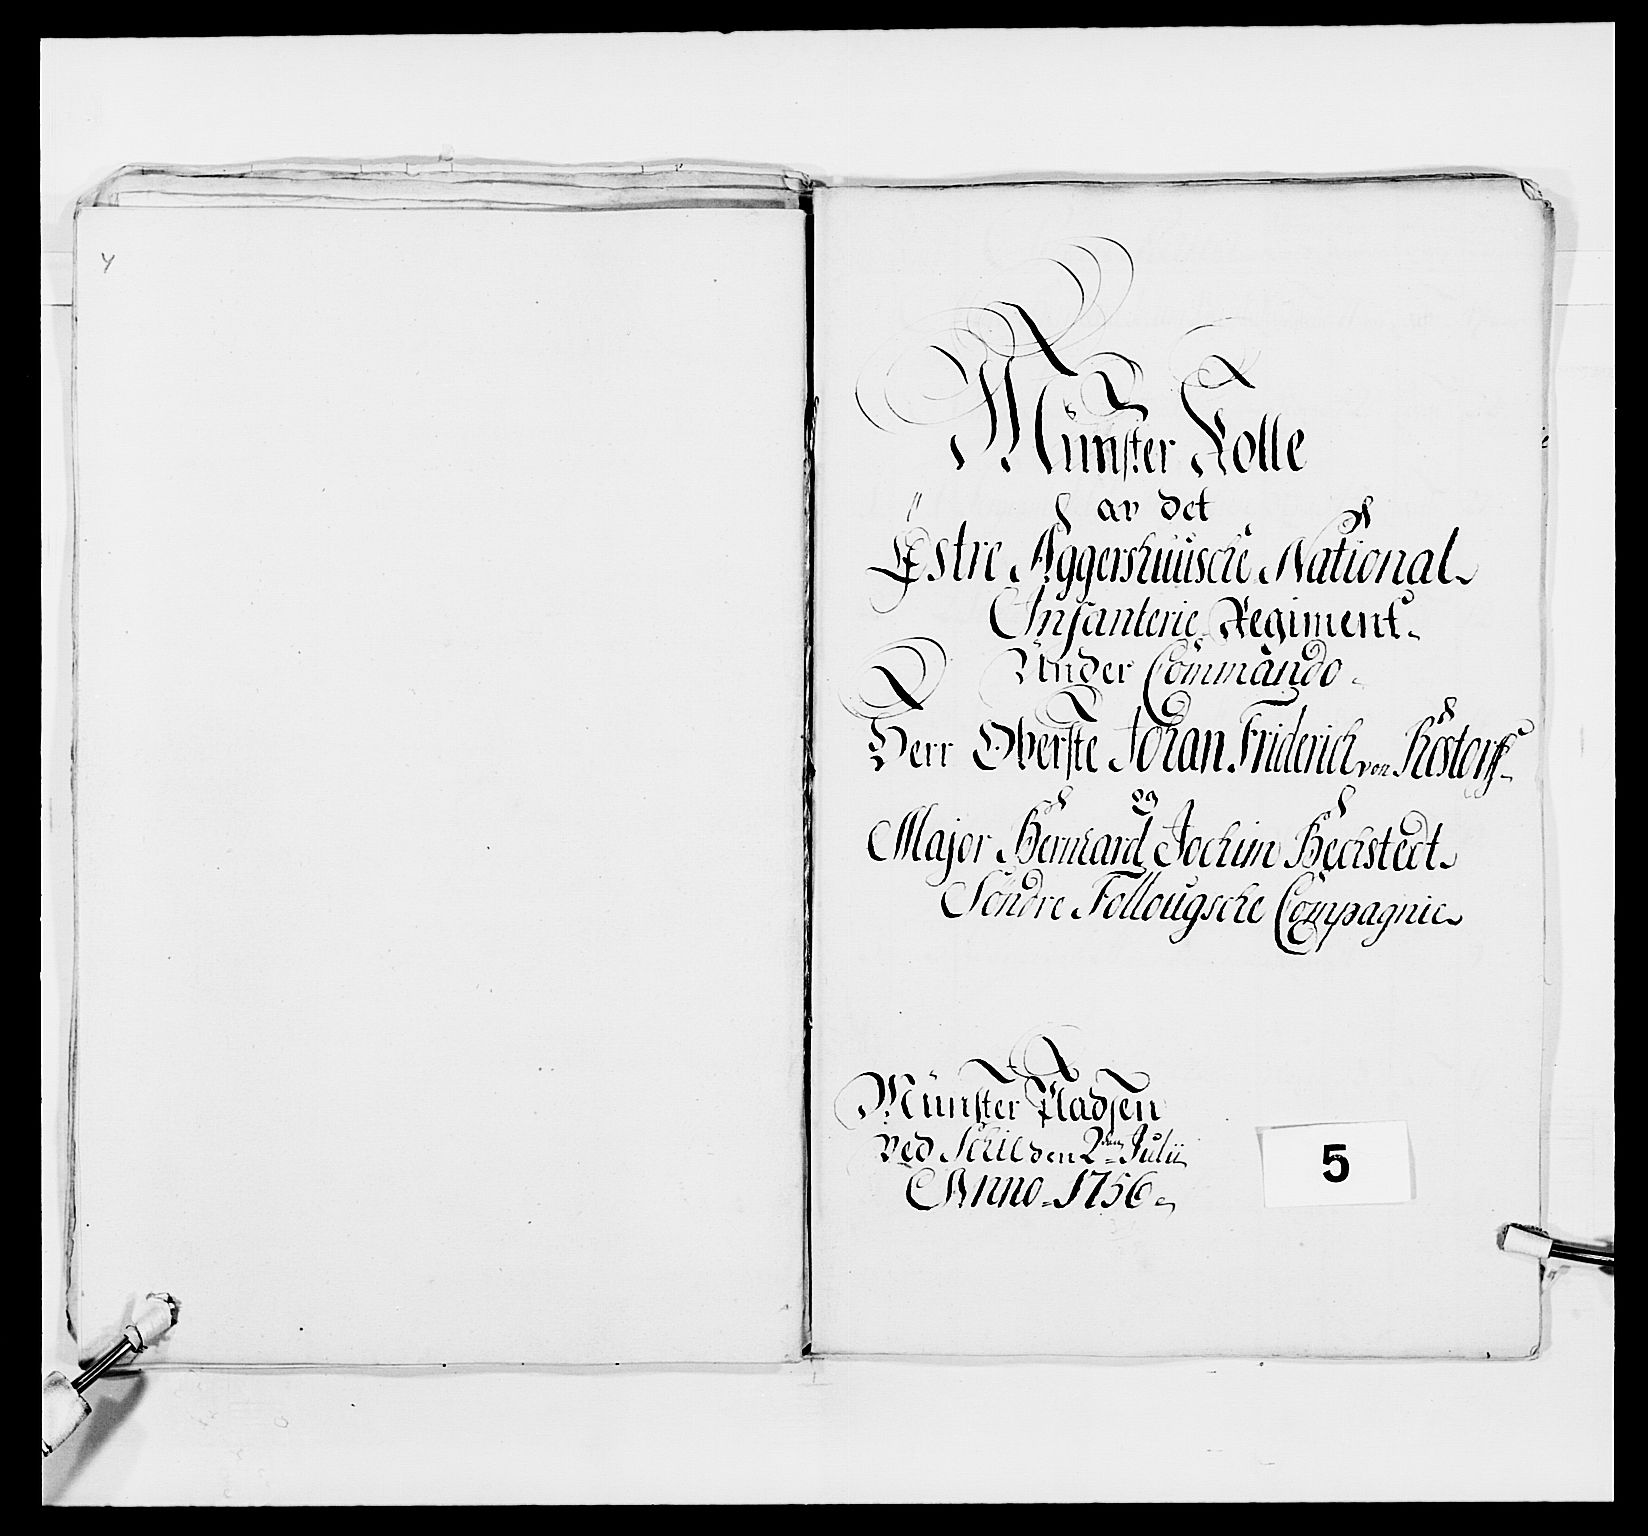 Münster Rolle
av det
Östre Aggershuusche National
Infanterie Regiment
Under Commando
Herr Oberste Johan Friderich von Rostorff
og
Major Bernhard Jochim Bechstedt
Söndre Follougsche Compagnie
Münster Pladsen
ved Schie den 2den Julii
Anno 1756
5